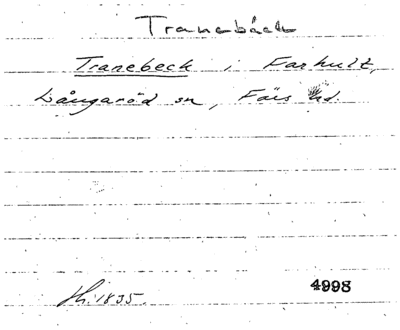 Tranebäck
Tranebeck i Farhult,
Långaröd sn, Färs hd.
Hh. 1835.
4998